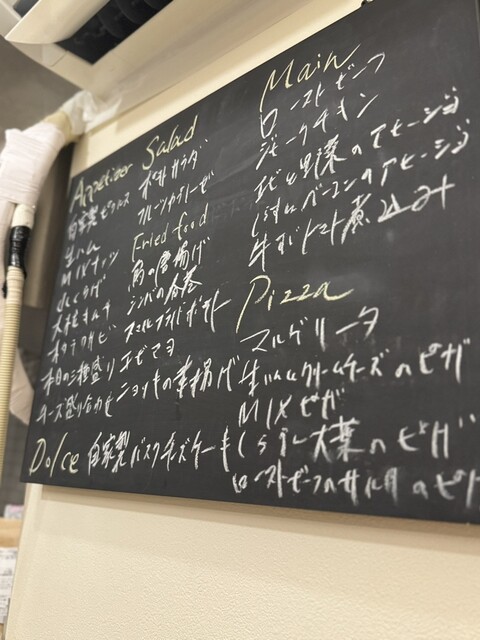 Appetizer
自家製ピクルス
生ハム
MIXナッツ
大根キムチ
本日の三種盛り
チーズ盛り合わせ
Salad
ポテトサラダ
フルーツカプレーゼ
Fried food
鶏の唐揚げ
スマイルフライドポテト
エビマヨ
ニョッキの素揚げ
Main
ローストビーフ
ジャークチキン
エビと野菜のアヒージョ
しらすとベーコンのアヒージョ
牛すじトマト煮込み
Pizza
マルゲリータ
生ハムとクリームチーズのピザ
MIXピザ
しらすと大葉のピザ
ローストビーフの のピザ
Dolce 自家製バスクチーズケーキ